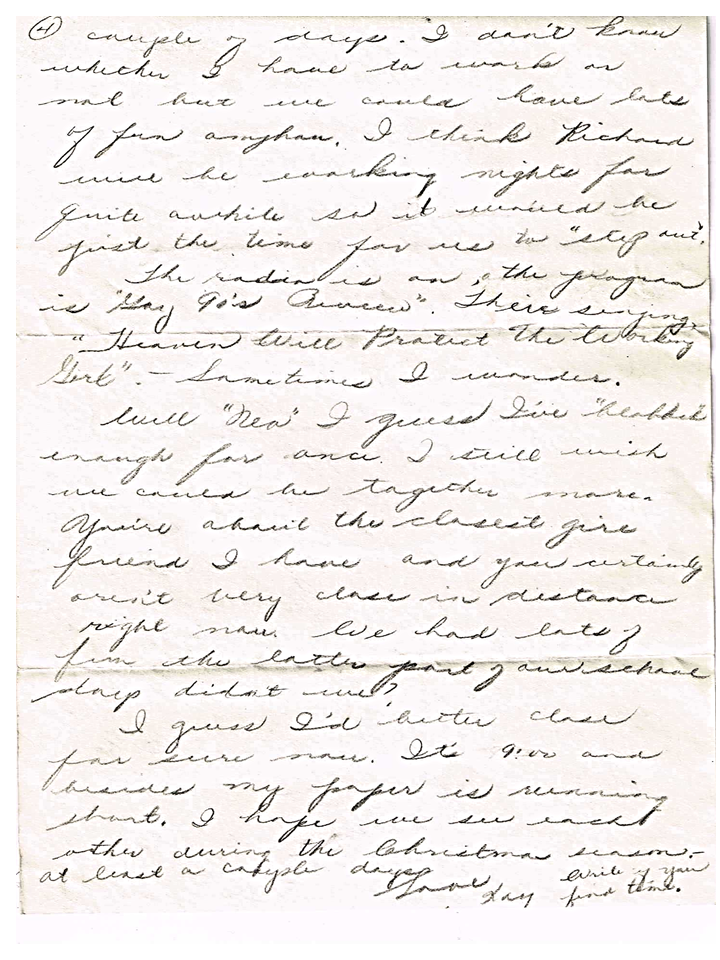 ④ couple of days. I don't know
whether I have to work or
not but we could have lots
of fun anyhow. I think Richard
will be working nights for
quite awhile so it would be
just the time for us to "step out".
The radio is on, the program
is "Gay 90's Review". There singing
"Heaven Will Protect The Working
Girl". — Sometimes I wonder.
Well "Neo" I guess I've "blabbed"
enough for once. I still wish
we could be together more.
You're about the closest girl
friend I have and you certainly
aren't very close in distance
right now. We had lots of
fun the latter part of our school
days didn't we?
I guess I'd better close
for sure now. It's 9:00 and
besides my paper is running
short. I hope we see each
other during the Christmas season. –
at least a couple days.
Love
Kay
Write if you
find time.